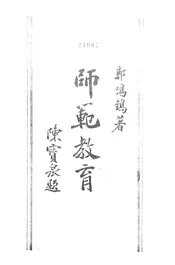 郭鴻鶚著
師範教育
陳寶泉題